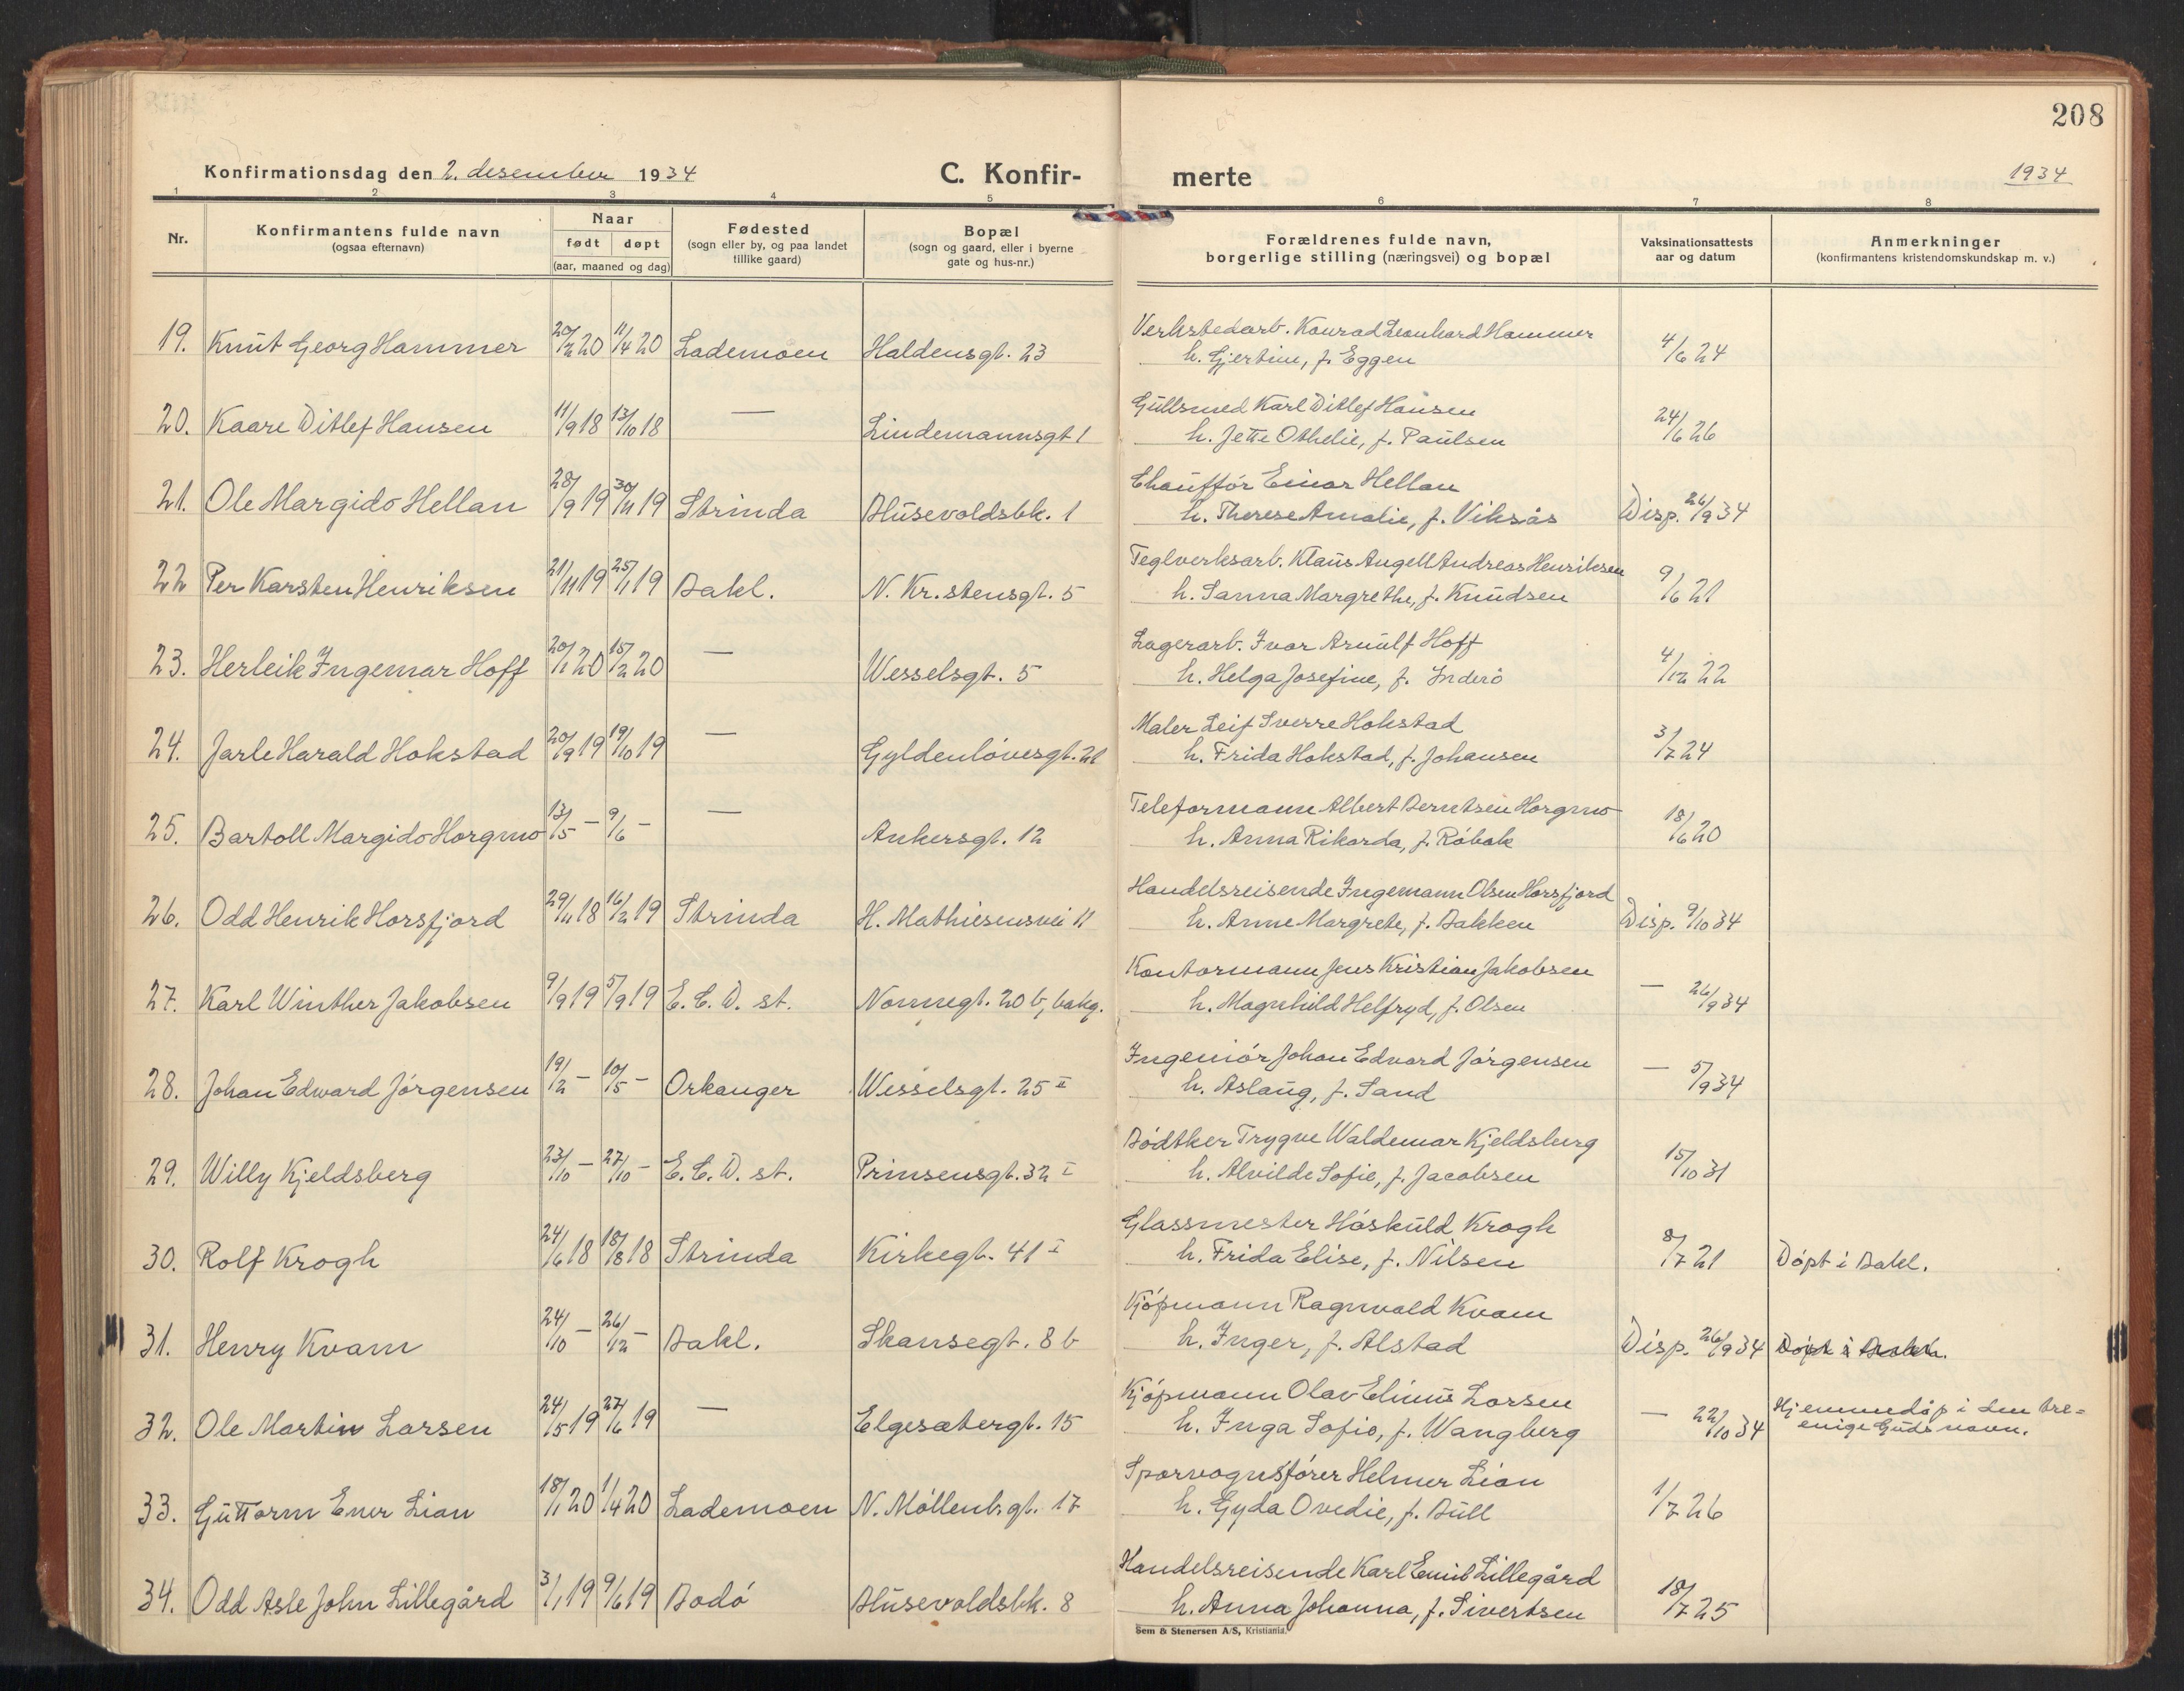 208
Konfirmationsdag den 2. desember 1934 C. Konfir-
merte 1934
1 2 3 4 5 6 7 8
Nr.
Konfirmantens fulde navn
(ogsaa efternavn)
Naar
født døpt
(aar, maaned og dag)
Fødested
(sogn eller by, og paa landet
tillike gaard)
Bopæl
(sogn og gaard, eller i byerne
gate og hus-nr.)
Forældrenes fulde navn,
borgerlige stilling (næringsvei) og bopæl
Vaksinationsattests
aar og datum
Anmerkninger
(konfirmantens kristendomskundskap m. v.)
Verkstedarb. Konrad Leonhard Hammer
19. Knut Georg Hammer 20/2 20 11/4 20 Lademoen Haldensgt. 23 h. Gjertine, f. Eggen 4/6 24
Gullsmed Karl Ditlef Hansen
20. Kaare Ditlef Hansen 11/9 18 13/10 18 — Lindemannsgt 1 h. Jette Othelie, f. Paulsen 24/6 26
Chauffør Einar Hellan
21. Ole Margido Hellan 28/9 19 30/11 19 Strinda Blusevoldsbk. 1 h. Therese Amalie, f. Viksås Disp. 26/9 34
Teglverksarb. Klaus Angell Andreas Henriksen
22 Per Karsten Henriksen 21/11 19 25/11 19 Bakl. N. Kr.stensgt. 5 h. Sanna Margrethe, f. Knudsen 9/6 21
Lagerarb. Ivar Arnulf Hoff
23. Herleik Ingemar Hoff 20/1 20 15/2 20 — Wesselsgt. 5 h. Helga Josefine, f. Inderö 4/12 22
Maler Leif Sverre Hokstad
24. Jarle Harald Hokstad 20/9 19 19/10 19 — Gyldenløvesgt. h. Frida Hokstad, f. Johansen 3/7 24
Teleformann Albert Berntsen Horgmo
25. Bartoll Margido Horgmo 13/5 – 9/6 – — Ankersgt. 12 h. Anna Rikarda, f. Røbak 18/6 20
Handelsreisende Ingemann Olsen Horsfjord
26. Odd Henrik Horsfjord 29/11 18 16/2 19 Strinda H. Mathiesensvei 11 h. Anne Margrete, f. Bakken Disp. 9/10 34
Kontormann Jens Kristian Jakobsen
27. Karl Winther Jakobsen 9/9 19 5/9 19 E. C. D. st. Nonnegt. 20 b, bakg. h. Magnhild Helfryd, f. Olsen — 26/9 34
Ingeniør Johan Edvard Jørgensen
28. Johan Edward Jørgensen 19/2 – 10/5 – Orkanger Wesselsgt. 25 II h. Aslaug, f. Sand — 5/9 34
Bødtker Trygve Waldemar Kjeldsberg
29. Willy Kjeldsberg 23/10 – 27/10 – E. C. D. st. Prinsensgt. 32 I h. Alvilde Sofie, f. Jacobsen 15/10 31
Glassmester Høskuld Krogh
30. Rolf Krogh 24/6 18 18/8 18 Strinda Kirkegt. 41 I h. Frida Elise, f. Nilsen 8/7 21 Døpt i Bakl.
Kjøpmann Ragnvald Kvam
31. Henry Kvam 24/10 – 26/12 – Bakl. Skansegt. 8 b h. Inger, f. Alstad Disp. 26/9 34 Døpt i Bakl.
Kjøpmann Olav Elinus Larsen
32. Ole Martin Larsen 24/5 19 27/6 19 — Elgesætergt. 15 h. Inga Sofie, f. Wangberg — 22/10 34 Hjemmedøp i den tre-
enige Guds navn.
Sporvognsfører Helmer Lian
33. Guttorm Ener Lian 18/1 20 1/4 20 Lademoen N. Møllenb.gt. 17 h. Gyda Ovedie, f. Bull 1/7 26
Handelsreisende Karl Emil Lillegård
34. Odd Asle John Lillegård 3/1 19 9/6 19 Bodø Blusevoldsbk. 8 h. Anna Johanna, f. Sivertsen 18/7 25
Sem & Stenersen A/S, Kristiania.